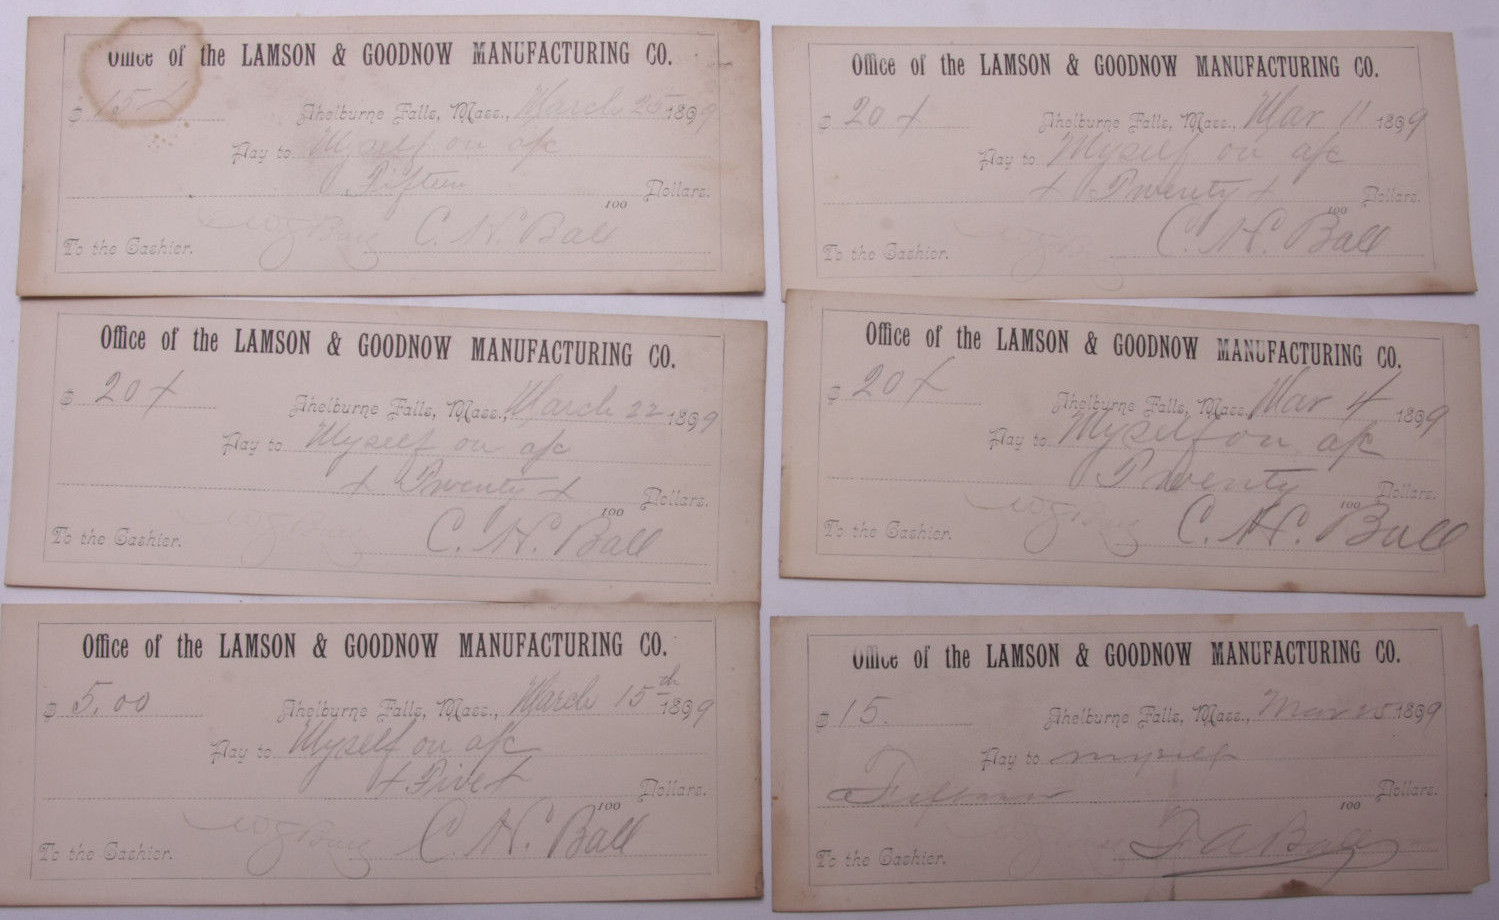 Office of the LAMSON & GOODNOW MANUFACTURING CO.
$ 15 x Shelburne Falls, Mass., March 25 1899
Pay to Myself on a/c
Fifteen 100 Dollars.
To the Cashier. C. H. Ball
Office of the LAMSON & GOODNOW MANUFACTURING CO.
$ 20 x Shelburne Falls, Mass., Mar 11 1899
Pay to Myself on a/c
x Twenty x 100 Dollars.
To the Cashier. C. H. Ball
Office of the LAMSON & GOODNOW MANUFACTURING CO.
$ 20 x Shelburne Falls, Mass., March 22 1899
Pay to Myself on a/c
x Twenty x 100 Dollars.
To the Cashier. C. H. Ball
Office of the LAMSON & GOODNOW MANUFACTURING CO.
$ 20 x Shelburne Falls, Mass., Mar 4 1899
Pay to Myself on a/c
Twenty 100 Dollars.
To the Cashier. C. H. Ball
Office of the LAMSON & GOODNOW MANUFACTURING CO.
$ 5.00 Shelburne Falls, Mass., March 15th 1899
Pay to Myself on a/c
x Five x 100 Dollars.
To the Cashier. C. H. Ball
Office of the LAMSON & GOODNOW MANUFACTURING CO.
$ 15. Shelburne Falls, Mass., Mar 1899
Pay to myself
Fifteen 100 Dollars.
To the Cashier. F A Ball